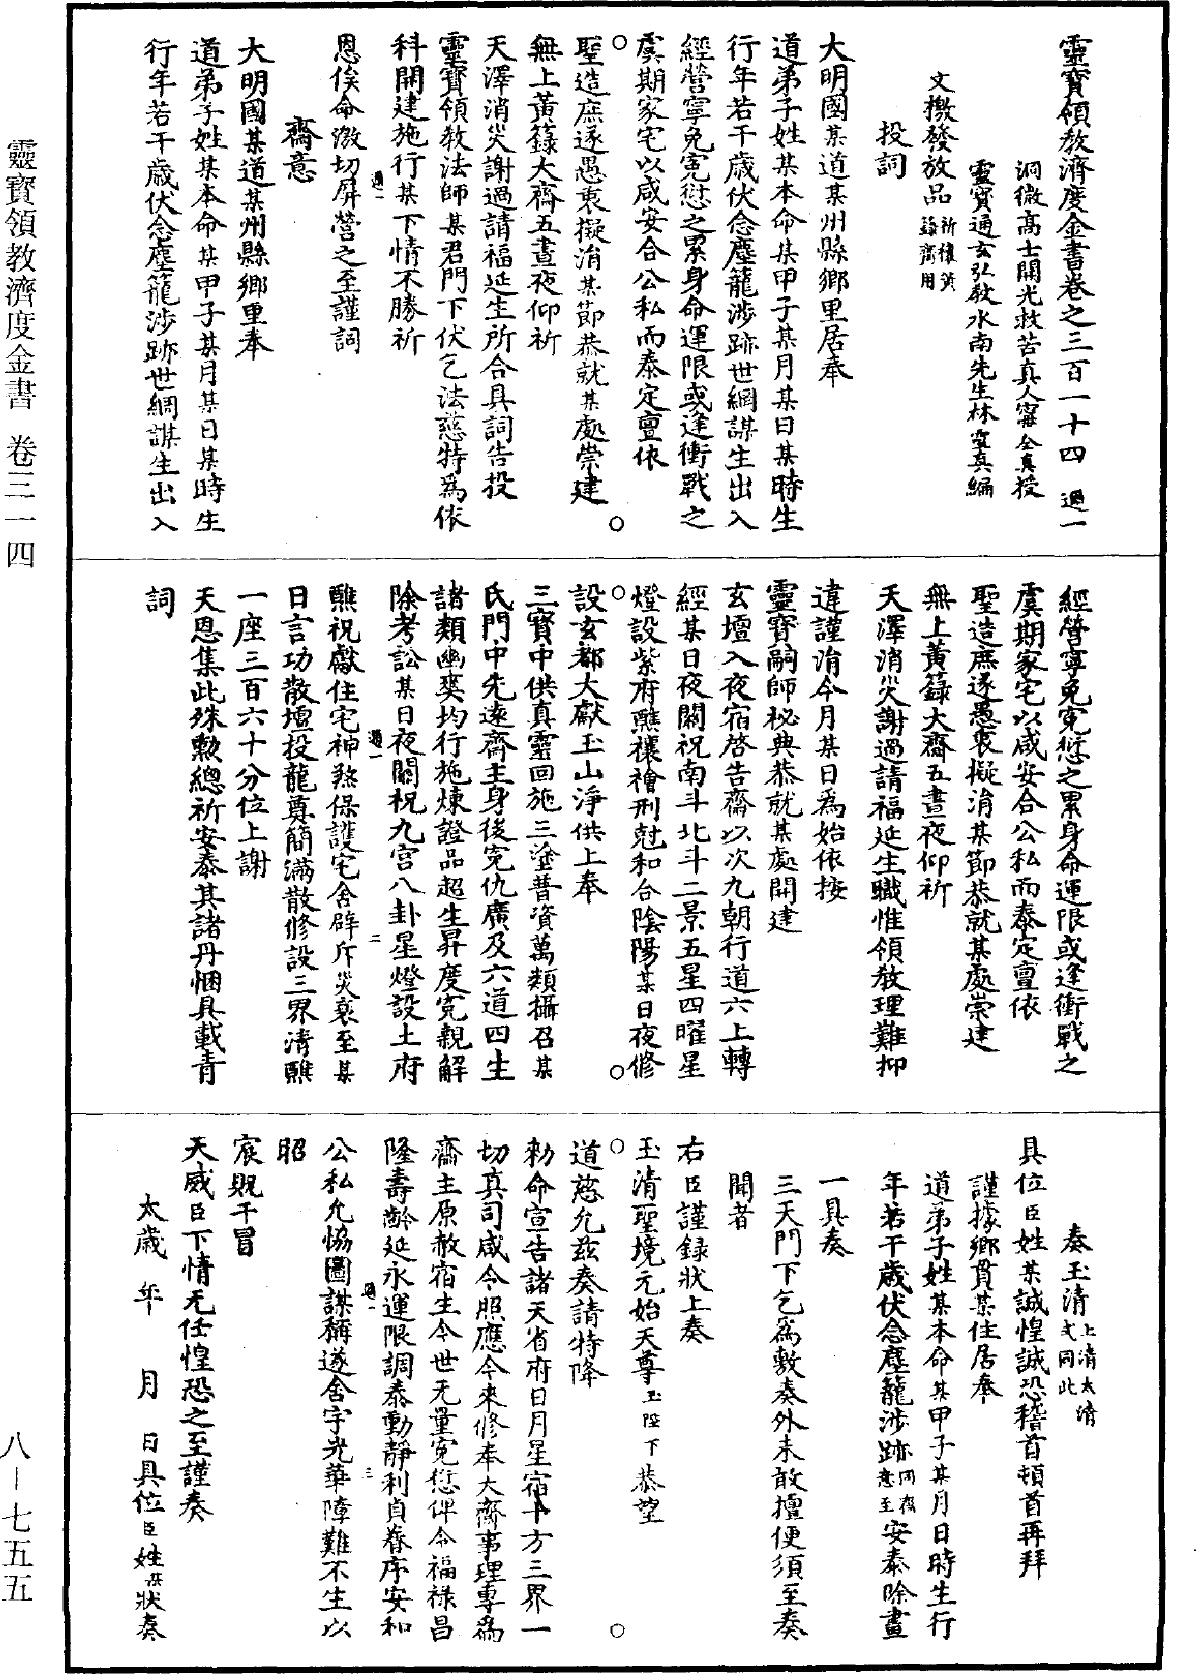 靈寶領教濟度金書卷之三百一十四　過一
洞微高士開光救苦真人甯全真授
靈寶通玄弘教水南先生林靈真編
文檄發放品祈禳黃籙齋用
投詞
大明國某道某州縣鄉里居奉
道弟子姓某本命某甲子某月某日某時生
行年若干歲伏念塵籠涉跡世綱謀生出入
經營寧免寃愆之累身命運限或逢衝戰之
虞期家宅以咸安合公私而泰定亶依
聖造庶遂愚衷擬消某節恭就某處崇建
無上黃籙大齋五晝夜仰祈
天澤消災謝過請福延生所合具詞告投
靈寶領教法師某君門下伏乞法慈特為依
科開建施行某下情不勝祈
恩俟命激切屏營之至謹詞
齋意
大明國某道某州縣鄉里奉
道弟子姓某本命某甲子某月某日某時生
行年若干歲伏念塵籠涉跡世綱謀生出入
經營寧免寃愆之累身命運限或逢衝戰之
虞期家宅以咸安合公私而泰定亶依
聖造庶遂愚衷擬消某節恭就某處崇建
無上黃籙大齋五晝夜仰祈
天澤消災謝過請福延生職惟領教理難抑
違謹消今月某日為始依按
靈寶嗣師秘典恭就某處開建
玄壇入夜宿啓告齋以次九朝行道六上轉
經某日夜關祝南斗北斗二景五星四曜星
燈設紫府醮禳禬刑尅和合陰陽某日夜修
設玄都大獻玉山淨供上奉
三寶中供真靈回施三塗普資萬類攝召某
氏門中先遠齋主身後寃仇廣及六道四生
諸類幽爽均行施煉證品超生昇度寃親解
除考訟某日夜關祝九宮八卦星燈設土府
醮祝獻住宅神煞保護宅舍辟斥災衺至某
日言功散壇投龍奠簡滿散修設三界清醮
一座三百六十分位上謝
天恩集此殊勲總祈安泰其諸丹悃具載青
詞
奏玉清上清太清文同此
具位臣姓某誠惶誠恐稽首頓首再拜
謹據鄉貫某住居奉
道弟子姓某本命某甲子某月日時生行
年若干歲伏念塵籠涉跡同齋意至安泰除畫
一具奏
三天門下乞為敷奏外未敢擅便須至奏
聞者
右臣謹錄狀上奏
玉清聖境元始天尊玉陛下恭望
道慈允茲奏請特降
勑命宣告諸天省府日月星宿十方三界一
切真司咸令照應今來修奉大齋事理專為
齋主原赦宿生今世无量寃愆俾令福祿昌
隆壽齡延永運限調泰動靜利貞眷序安和
公私允恊圖謀稱遂舍宇光華障難不生以
昭
宸貺干冒
天威臣下情无任惶恐之至謹奏
太歲　年　月　日具位臣姓某狀奏
靈寶領教濟度金書　卷三一四
八－七五五